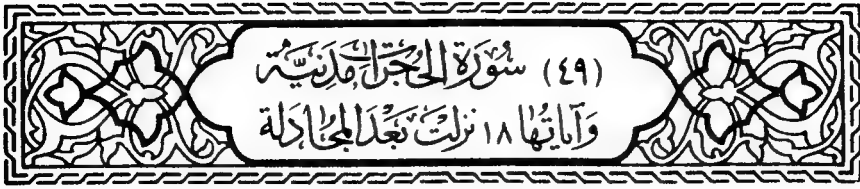 (٤٩) سُورَة الحُجرَات مَدَنِيَّة
وَآيَاتُهَا ١٨ نزلَت بَعْدَ المجَادَلة